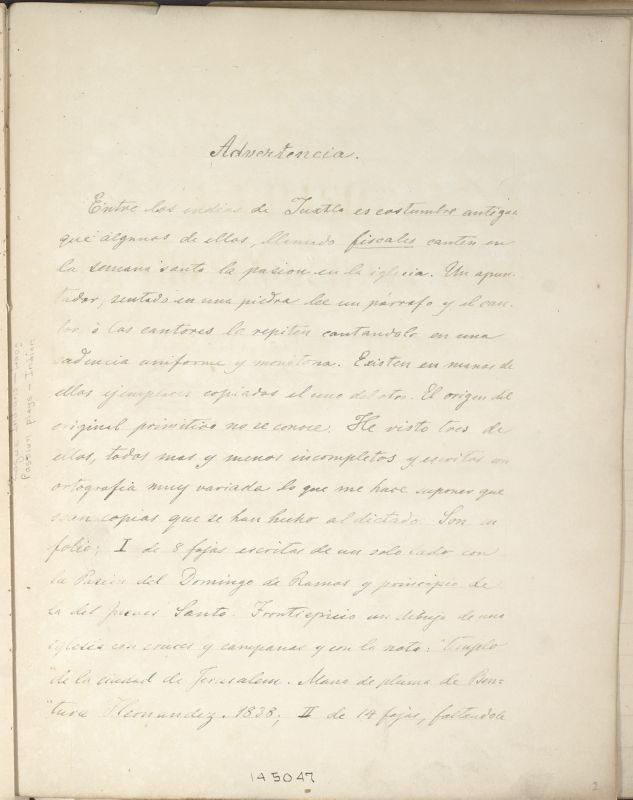 Advertencia.
Entre los indios de Tuxtla es costumbre antigua
que algunos de ellos, llamado fiscales canten en
la semana santa la pasion en la iglesia. Un apun-
tador, sentado en una piedra lee un párrafo y el can-
tor ó los cantores lo repiten cantandolo en una
cadencia uniforme y monótona. Existen en manos de
ellos ejemplares copiados el uno del otro. El origen del
original primitivo no se conoce. He visto tres de
ellos, todos mas y menos incompletos y escritos con
ortografia muy variada lo que me hace suponer que
sean copias que se han hecho al dictado. Son in
folio; I de 8 fojas escritas de un solo lado con
la Pasion del Domingo de Ramos y principio de
la del jueves Santo. Frontispicio un dibujo de una
iglesia con cruces y campanas y con la nota: "templo
"de la ciudad de Jerusalem. Mano de pluma de Ben=
"tura Hernandez. 1838; II de 14 fojas, faltandole
145047
2
Zoque Indians - Lang
Passion Plays - Indian